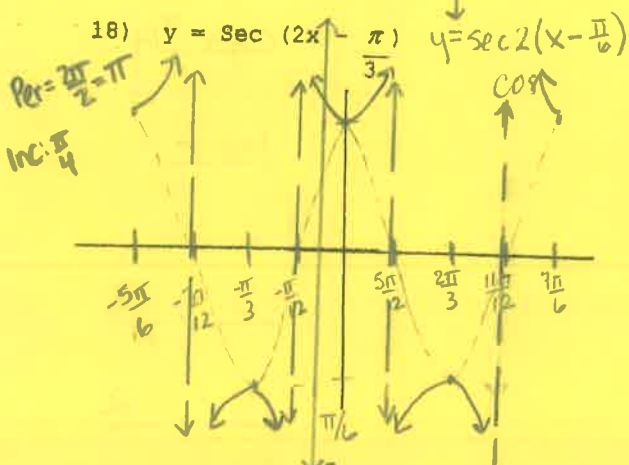 18) y = Sec (2x - π/3) y = sec 2(x - π/6)
Per = 2π/2 = π
cos
Inc: π/4
-5π/6 -7π/12 -π/3 -π/12 5π/12 2π/3 11π/12 7π/6
π/6